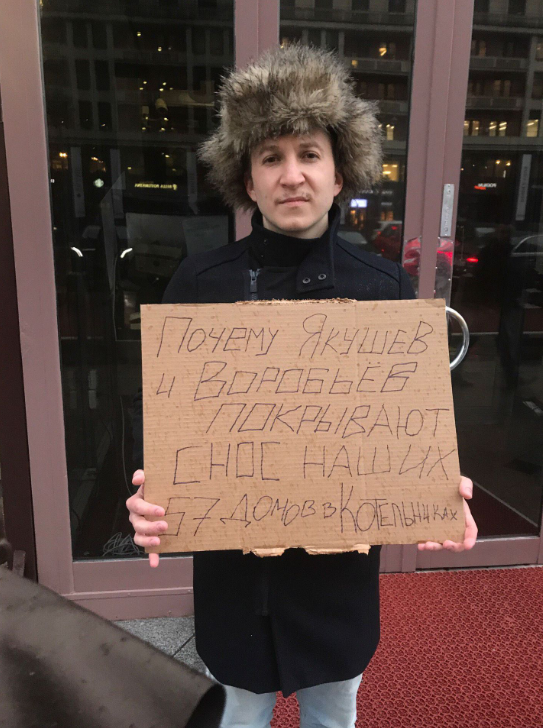 Почему Якушев
и Воробьёв
покрывают
снос наших
57 домов в Котельниках